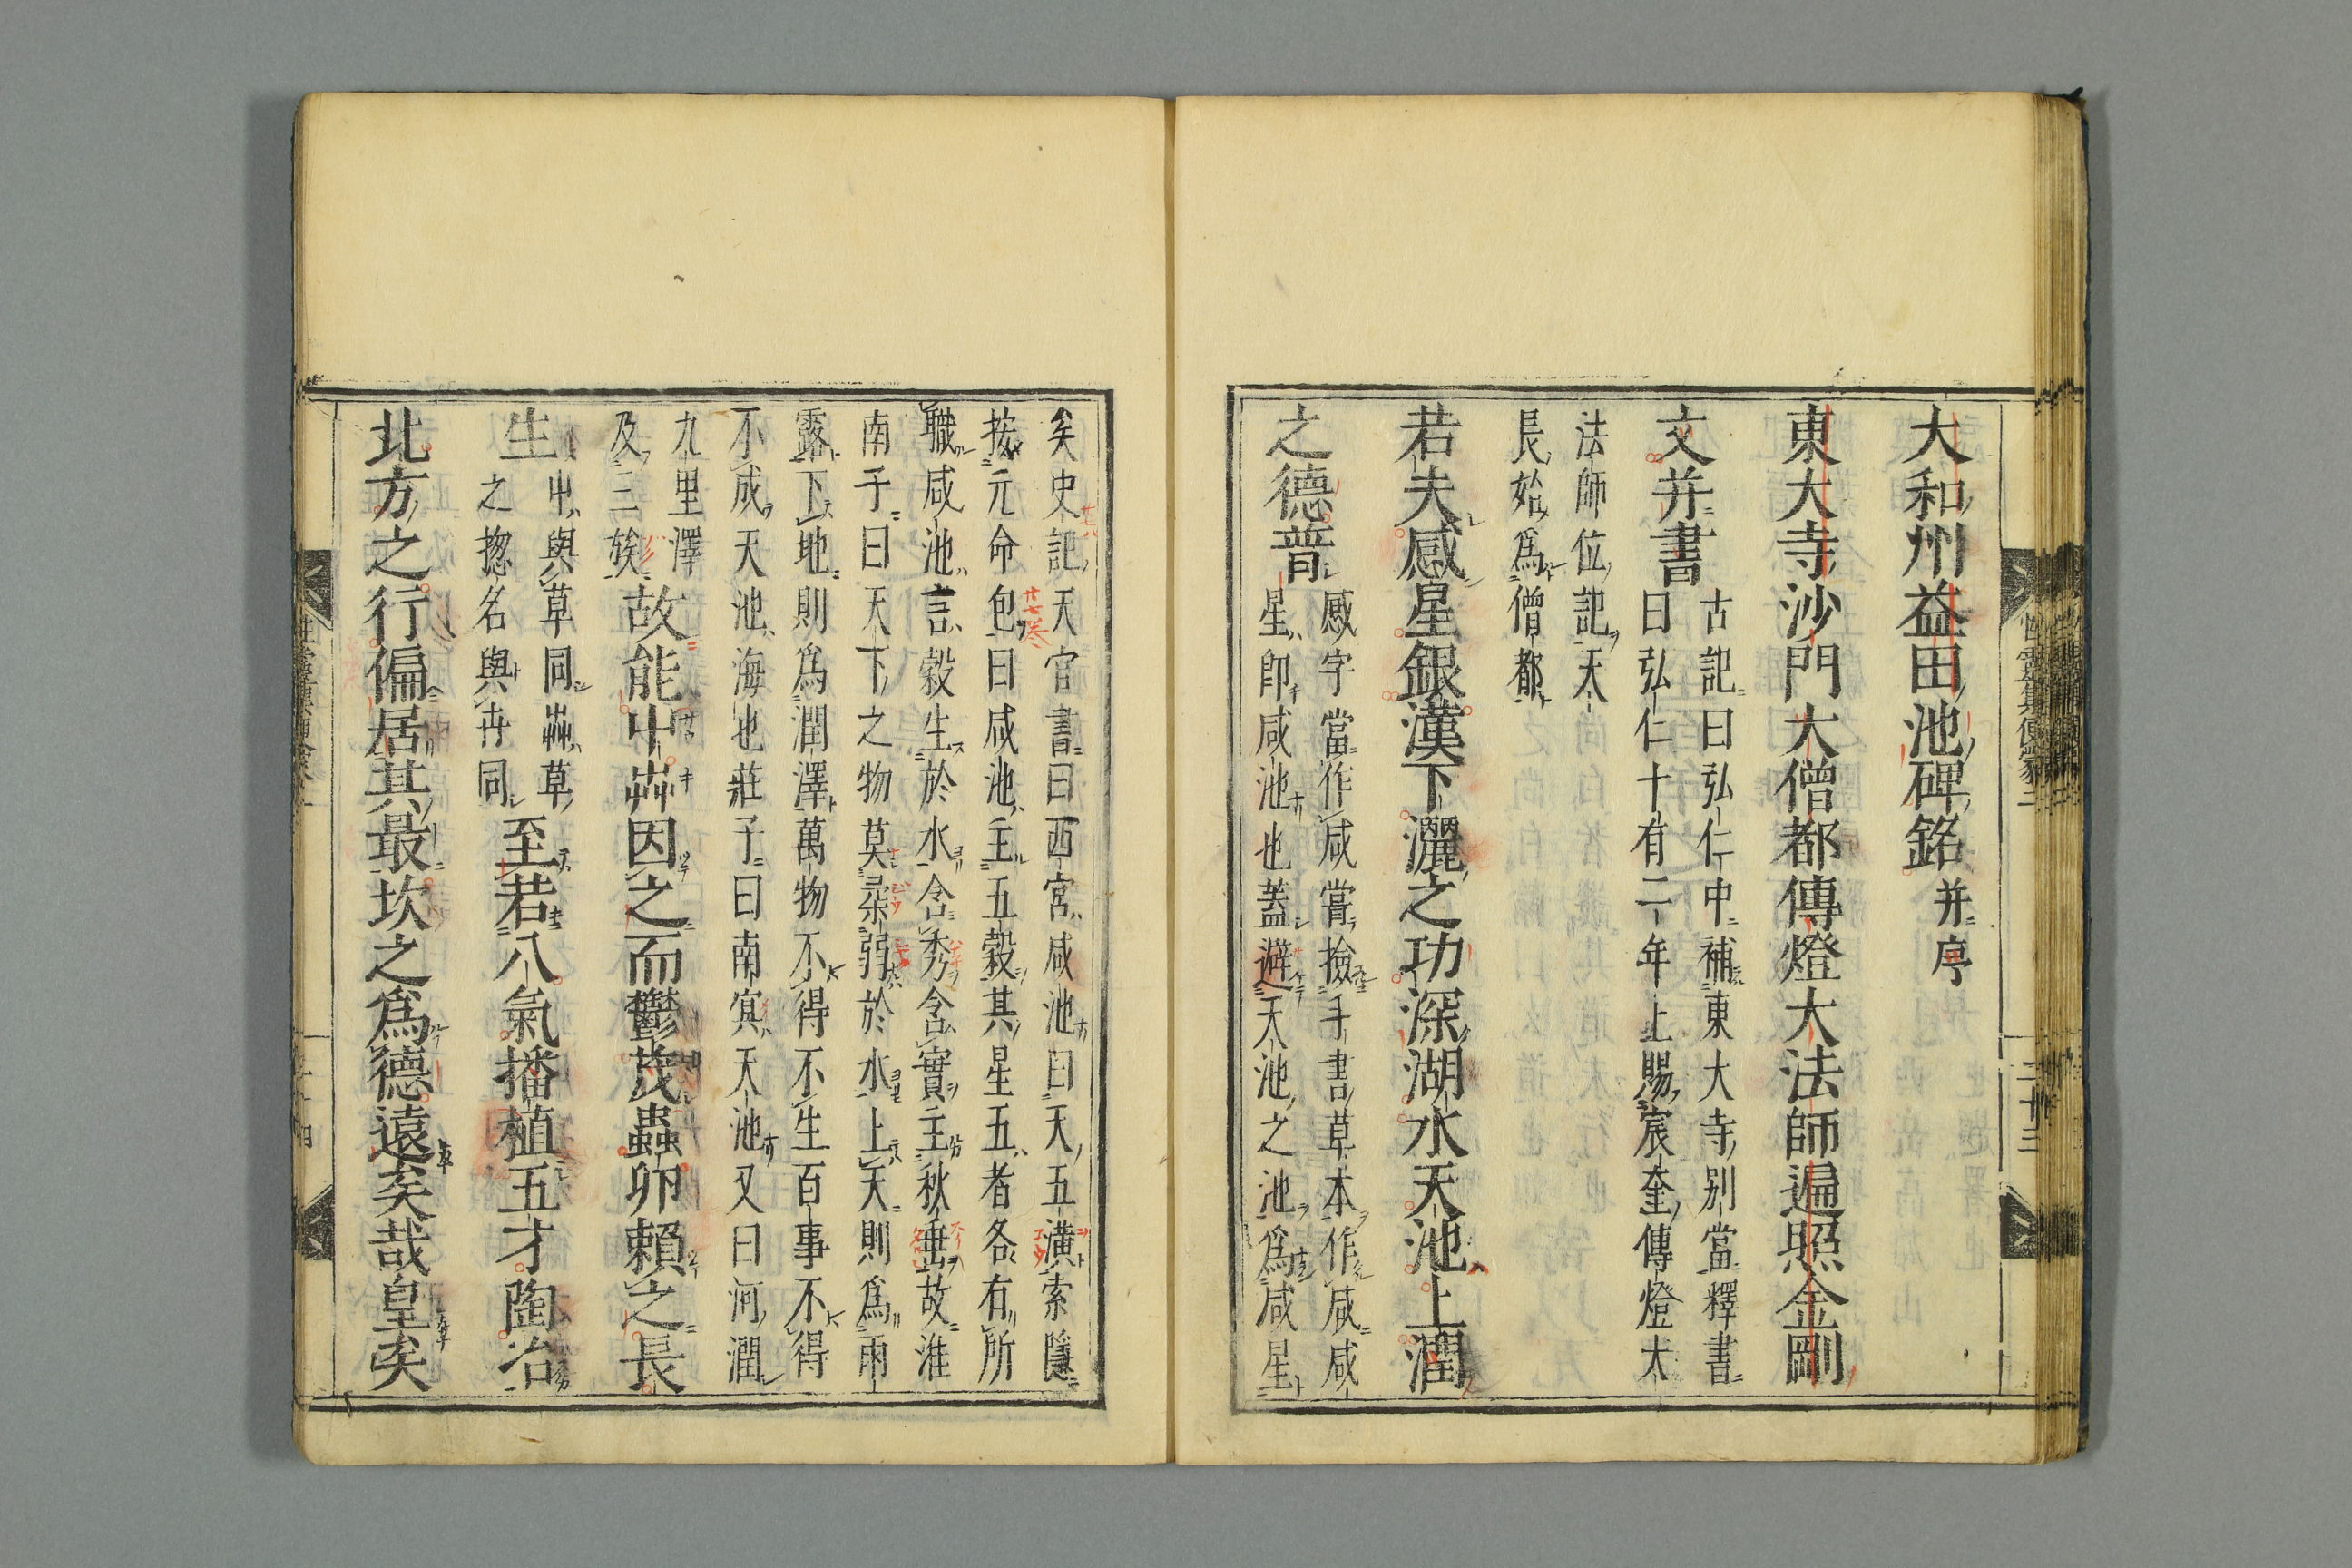 大和州益田池碑銘并序
東大寺沙門大僧都傳燈大法師遍照金剛
文并書
古記曰弘仁中補東大寺別當釋書
曰弘仁十有二年上賜宸奎傳燈大
法師位記天
長始爲僧都
若夫感星銀漢下灑之功深湖水天池上潤
之德普
感字當作咸嘗撿手書草本作咸咸
星即咸池也蓋避天池之池爲咸星
矣史記天官書曰西宮咸池曰天五潢索隱
按元命包曰咸池主五穀其星五者各有所
職咸池言穀生於水含秀含實主秋垂故淮
南子曰天下之物莫柔弱於水上天則爲雨
露下地則爲潤澤萬物不得不生百事不得
不成天池海也莊子曰南冥天池又曰河潤
九里澤
及三族
故能屮茻因之而鬱茂蟲卵賴之長
生
屮與草同茻草
之摠名與卉同
至若八氣播植五才陶冶
北方之行偏居其最坎之爲德遠矣哉皇矣
二十三